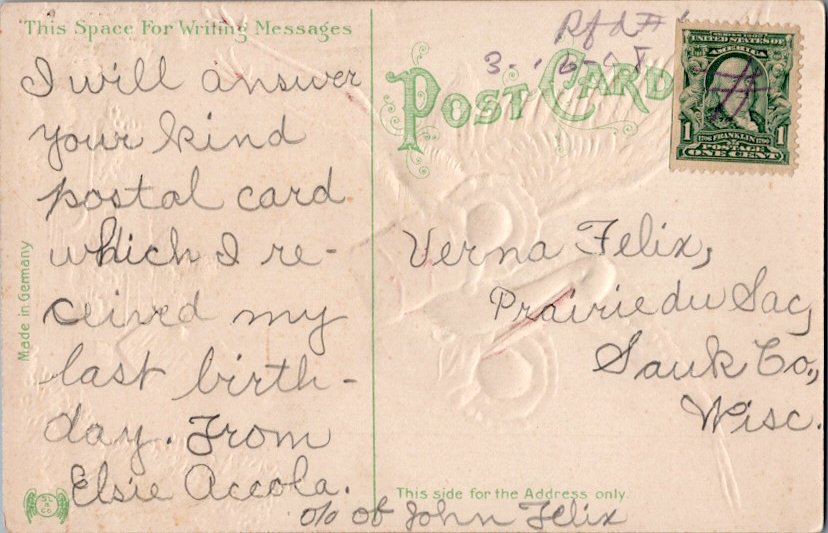 This Space For Writing Messages
I will answer
your kind
postal card
which I re-
ceived my
last birth-
day. From
Elsie Accola.
Made in Germany
POST CARD
Rfd #
3
SERIES 1902
UNITED STATES OF
AMERICA
1 1
1706 FRANKLIN 1790
POSTAGE
ONE CENT
Verna Felix,
Prairie du Sac,
Sauk Co.,
Wisc.
This side for the Address only.
c/o of John Felix